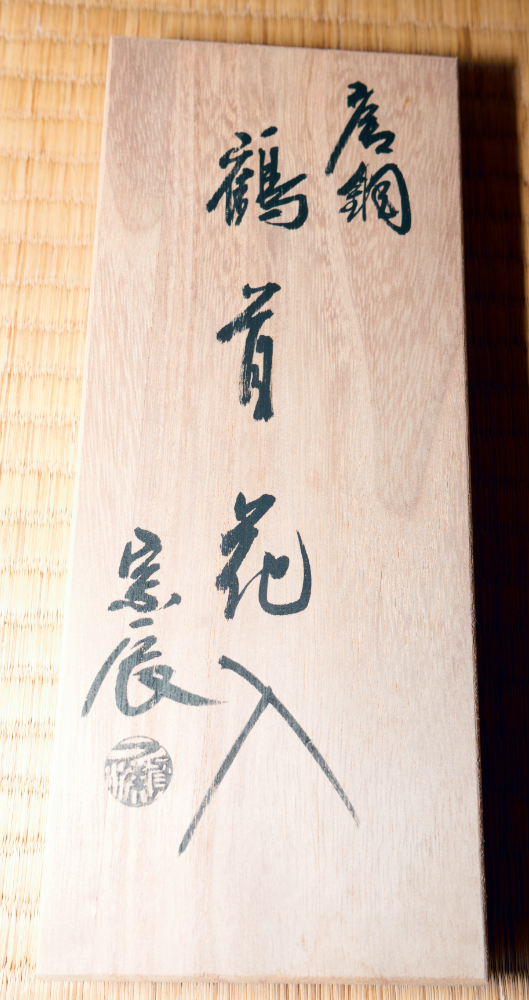 唐銅
鶴首花入
宗辰